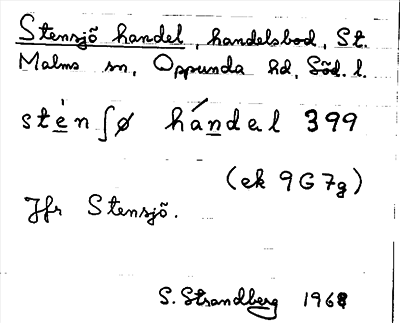 Stensjö handel, handelsbod, St.
Malms sn, Oppunda hd, Söd. l.
stèn∫ø hándel 399
(ek 9G7g)
Jfr Stensjö.
S. Strandberg 1968